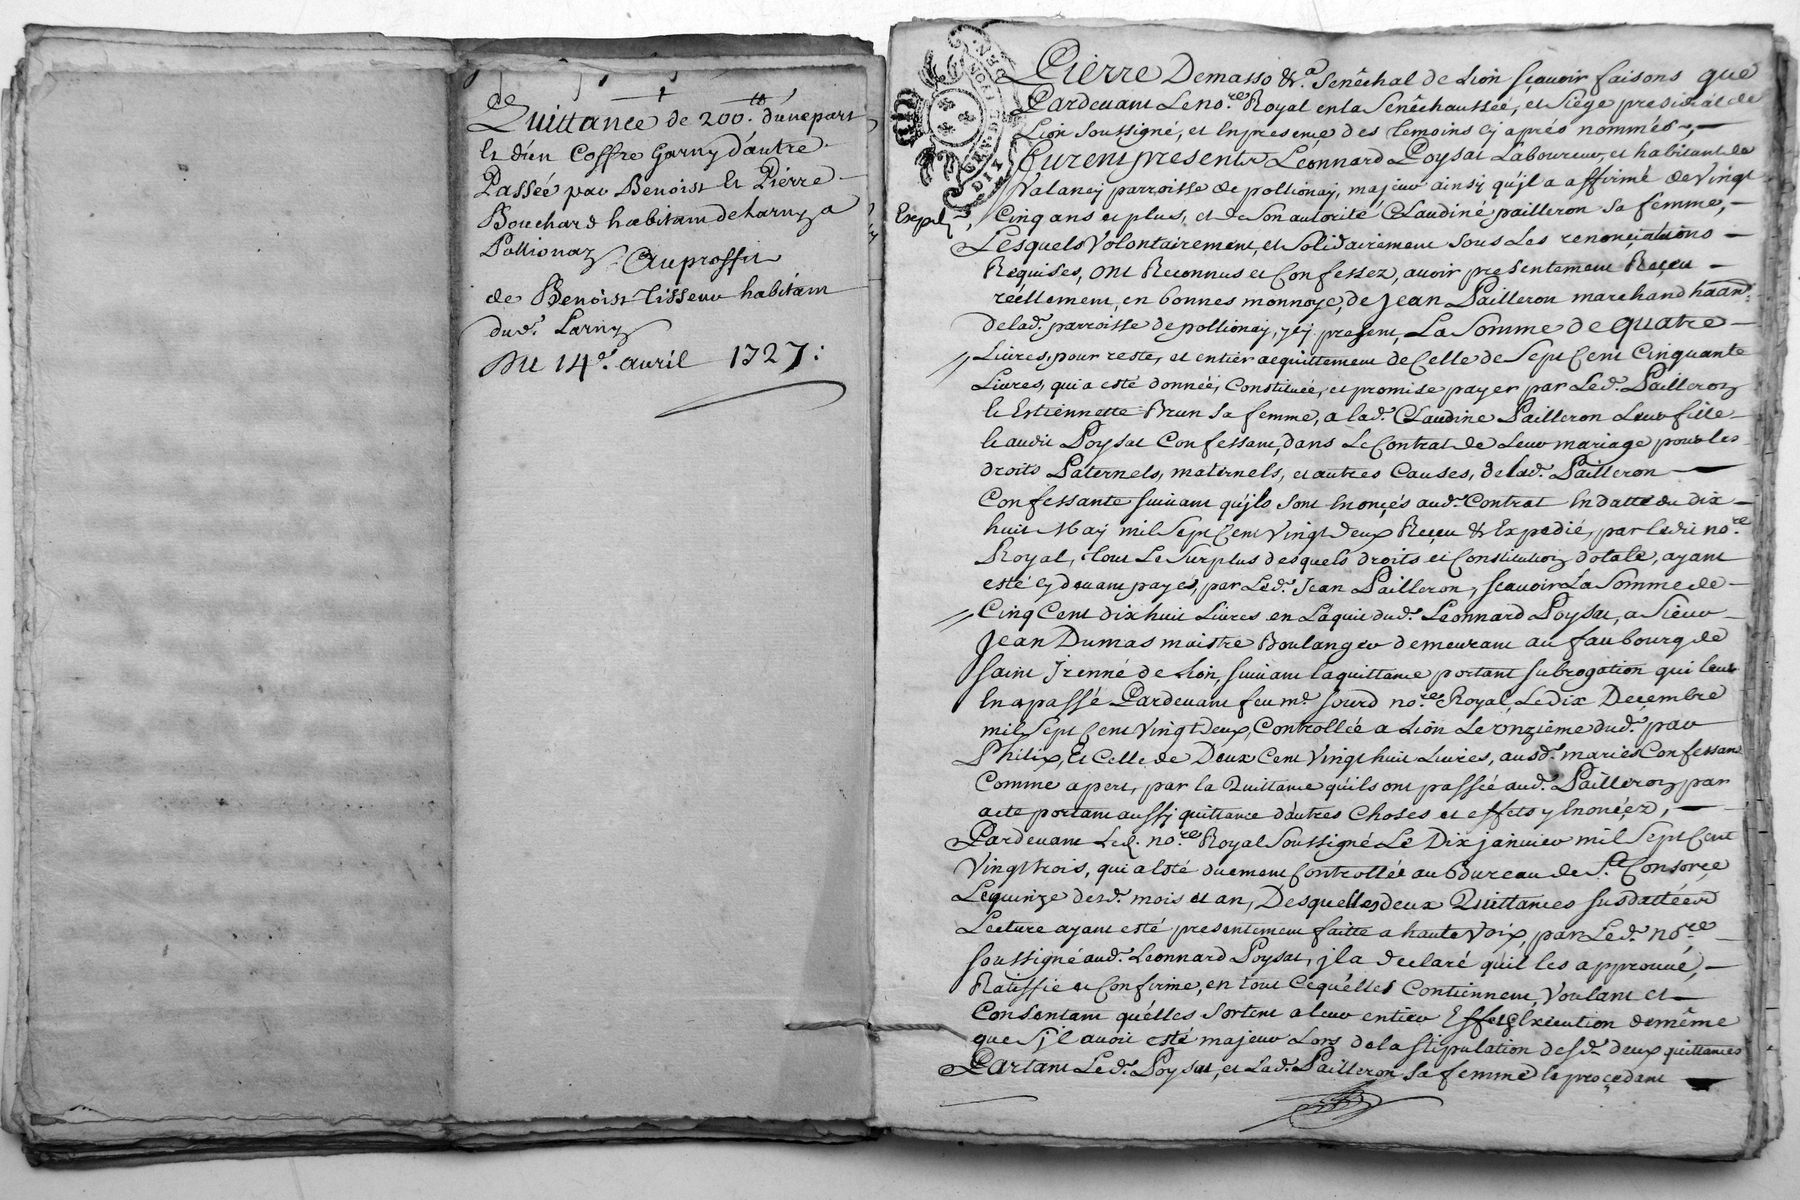 Quittance de 200.ᵗᵗ d'une part
Et d'un Coffre Garny d'autre.
Passée par Benoist Et Piérre
Bouchard habitam de Larny a
Pollionay. Au proffit
de Benoist Tisseur habitam
dud.ᵗ Larny
Du 14.ᵉ avril 1727:
GEN. DE LYON
DIX DEN.
Expd.
Piérre Demasso &.ᵃ Senêchal de Lion sçavoir faisons que
Pardevant Le no.ʳᵉ Royal en la Senêchaussée, et Siége presidial de
Lion soussigné, et En presence des temoins cy aprés nommés,
furent presents Léonnard Poysat Laboureur, et habitant de
Valancy parroisse de pollionay, majeur ainsy qu'jl a affirmé de vingt
Cinq ans et plus, et de Son autorité Claudine pailleron sa femme,
Lesquels Volontairement, et Solidairement sous Les renonciations
Requises, ont Reconnus et Confessez, avoir presentement Reçeu
réellement, en bonnes monnoye, de Jean Pailleron marchand haân.ᵗ
de lad. parroisse de pollionay, jcy present, La Somme de quatre
Livres, pour reste, et entier acquittement de Celle de Sept Cent Cinquante
Livres, qui a esté donnée, Constituée, et promise payer par Led. Pailleron
Et Estiennette Brun sa femme, a lad. Claudine Pailleron Leur fille
Et audit Poysat Confessant, dans Le Contrat de Leur mariage pour les
droits Paternels, maternels, et autres Causes, de lad. Pailleron
Confessante suivant qu'jls sont Enonçés aud. Contrat En datte du dix
huit May mil Sept Cent Vingt deux Reçeu & Expedié, par ledit no.ʳᵉ
Royal, tout Le Surplus desquels droits et Constitution dotale, ayant
esté cy devant payés, par Led. Jean Pailleron, sçavoir La Somme de
Cinq Cent dix huit Livres en L'aquit dud. Leonnard Poysat, a Sieur
Jean Dumas maistre Boulanger demeurant au faubourg de
Saint Jrenné de Lion, suivant la quittance portant subrogation qui leur
En a passé Pardevant feu m.ᵉ Jourd no.ʳᵉ Royal, Le dix Decembre
mil Sept Cent Vingt deux, Controllée a Lion Le onziéme dud. par
Philix, Et Celle de Deux Cent Vingt huit Livres, ausd. mariés Confessant
Comme apert, par la Quittance qu'ils ont passée aud. Pailleron par
acte portant aussy quittance d'autres Choses et effets y Enoncéz,
Pardevant Led. no.ʳᵉ Royal Soussigné Le Dix janvier mil Sept Cent
Vingt trois, qui a Esté duement Controllée au Bureau de S.ᵗᵉ Consorçe
Le quinze desd. mois et an, Desquelles deux Quittances susdattées
Lecture ayant esté presentement faitte a haute voix, par Led. no.ʳᵉ
soussigné aud. Leonnard Poysat, jl a declaré qu'il les approuve,
Ratiffie et Confirme, en tout Ce qu'elles Contiennent, Voulant et
Consentant qu'élles sortent a leur entier Effet & Execution de même
que s'jl avoit esté majeur Lors de la stipulation desd. deux quittances
Partant Led. Poysat, et Lad. Pailleron sa femme Le proçedant